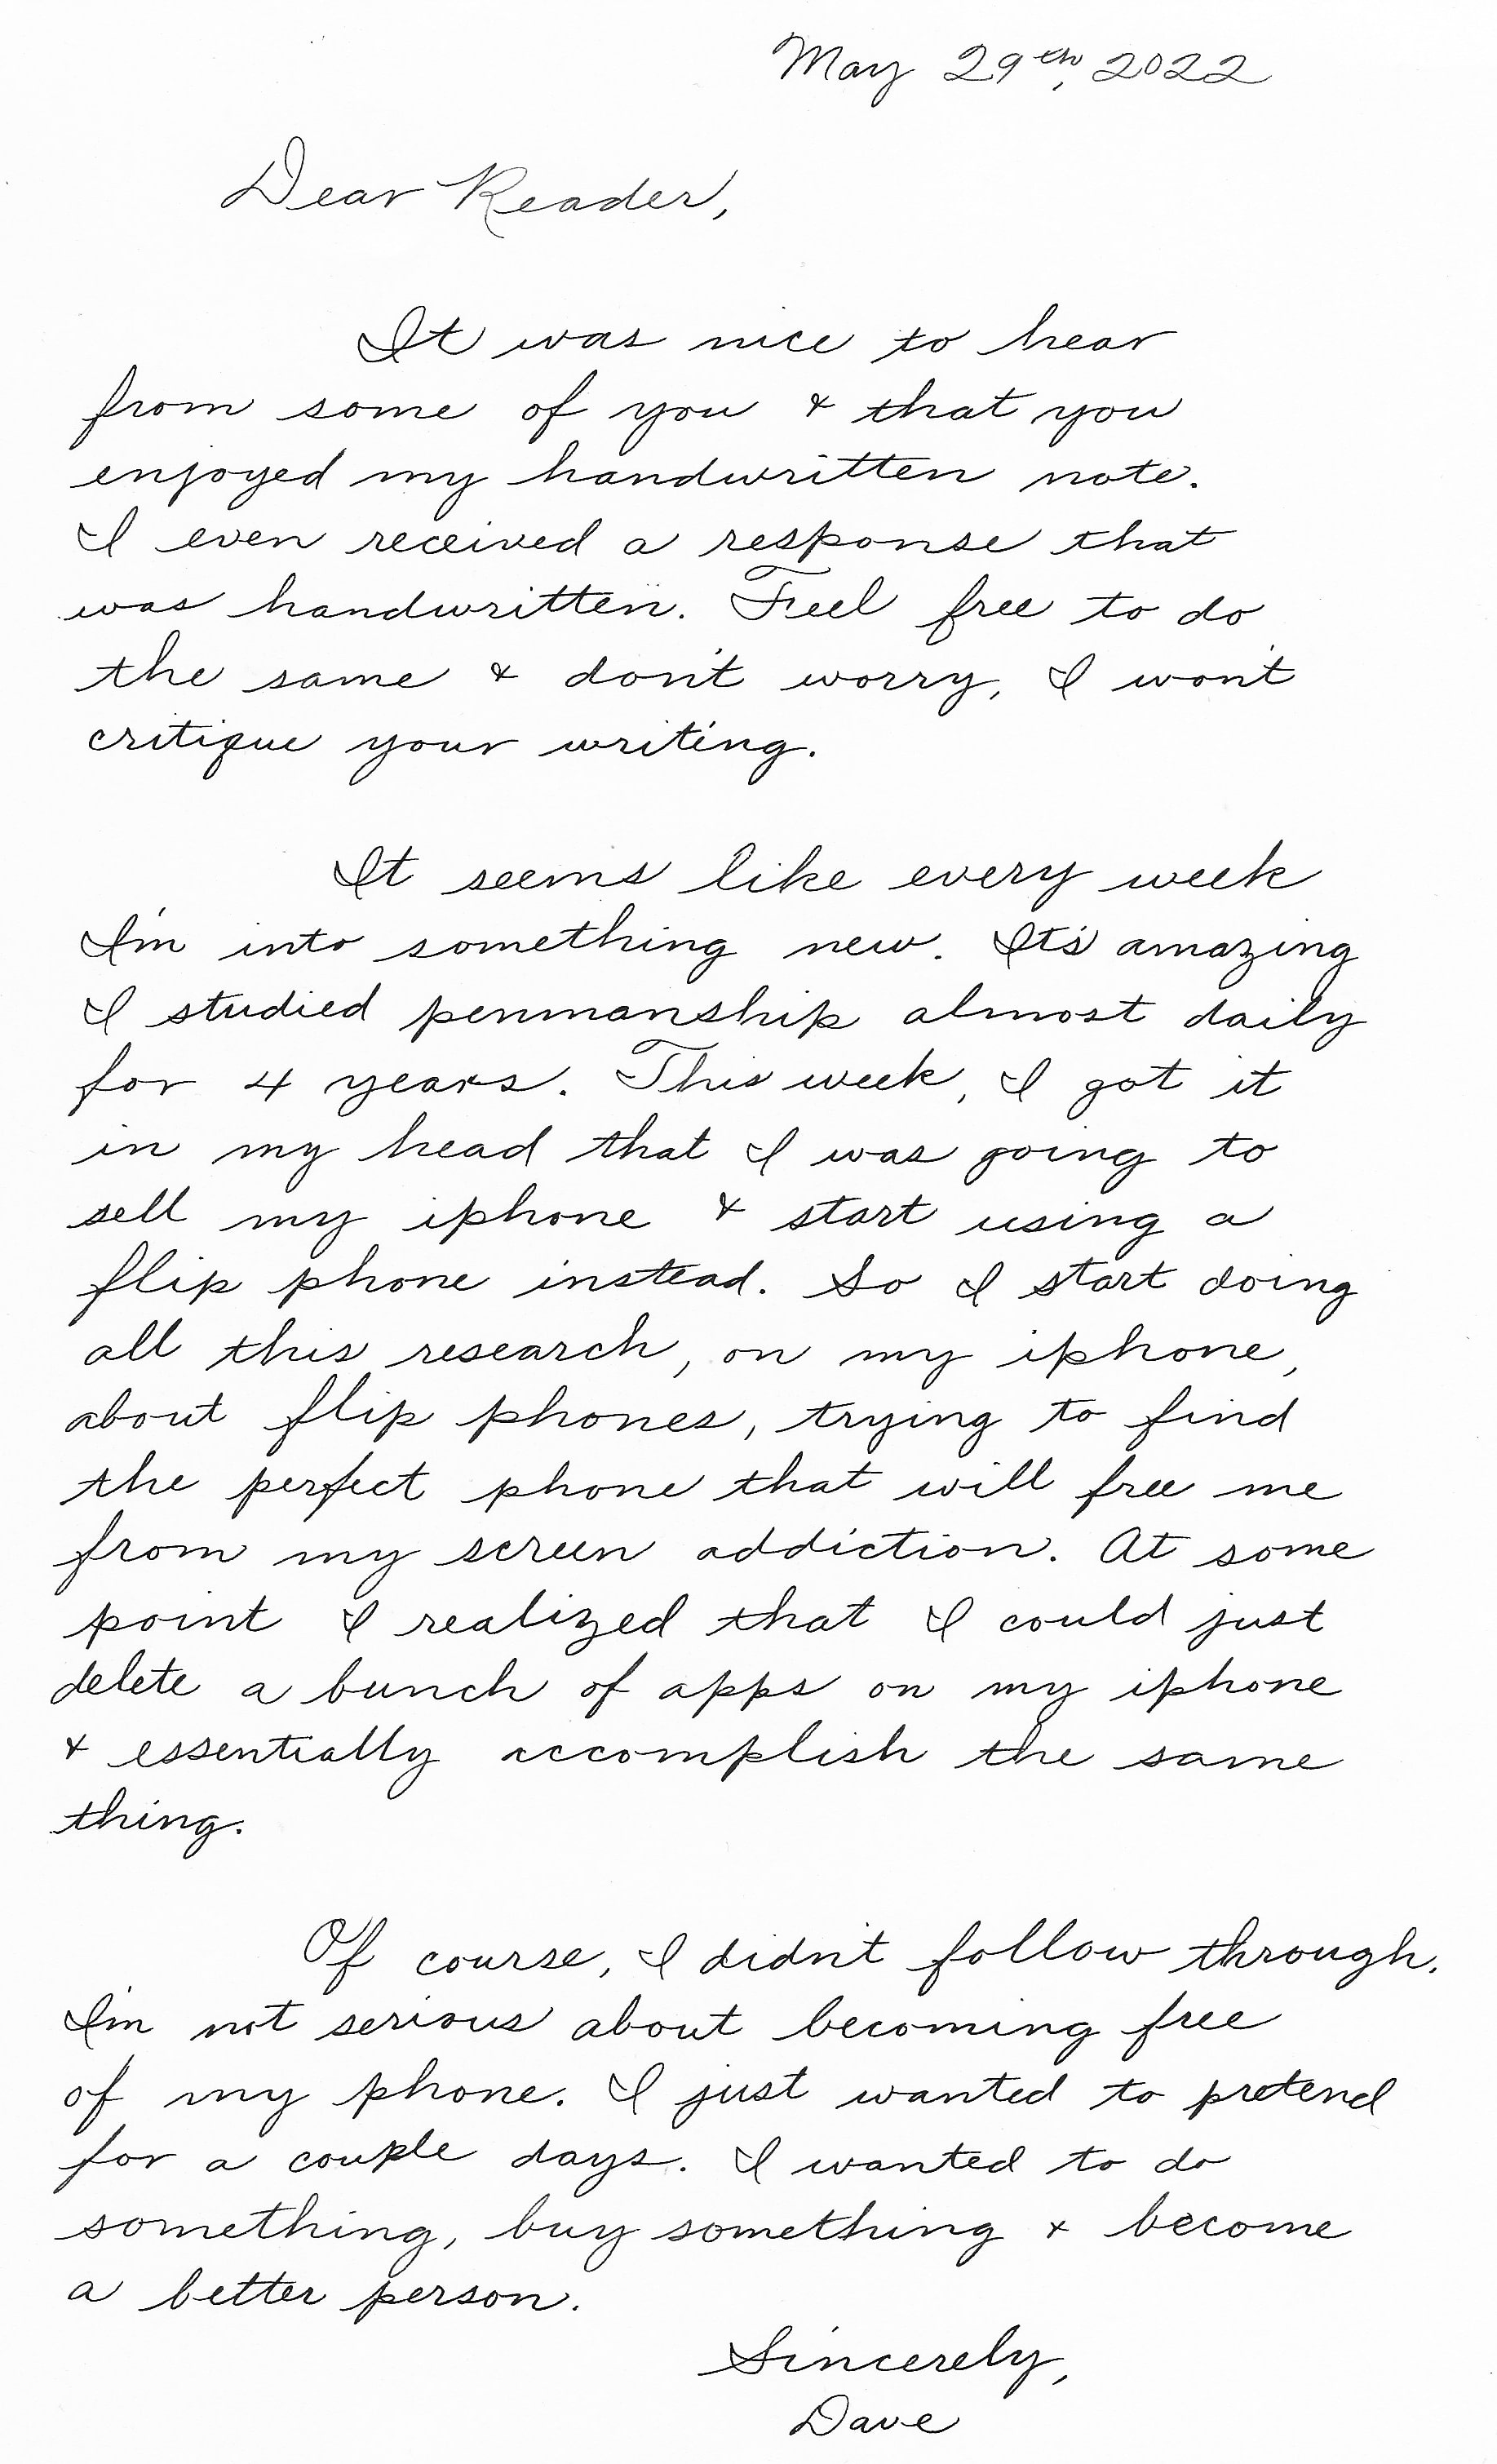 May 29th, 2022
Dear Reader,
It was nice to hear
from some of you & that you
enjoyed my handwritten note.
I even received a response that
was handwritten. Feel free to do
the same & don't worry, I won't
critique your writing.
It seems like every week
I'm into something new. It's amazing
I studied penmanship almost daily
for 4 years. This week, I got it
in my head that I was going to
sell my iphone & start using a
flip phone instead. So I start doing
all this research, on my iphone,
about flip phones, trying to find
the perfect phone that will free me
from my screen addiction. At some
point I realized that I could just
delete a bunch of apps on my iphone
& essentially accomplish the same
thing.
Of course, I didn't follow through.
I'm not serious about becoming free
of my phone. I just wanted to pretend
for a couple days. I wanted to do
something, buy something & become
a better person.
Sincerely,
Dave